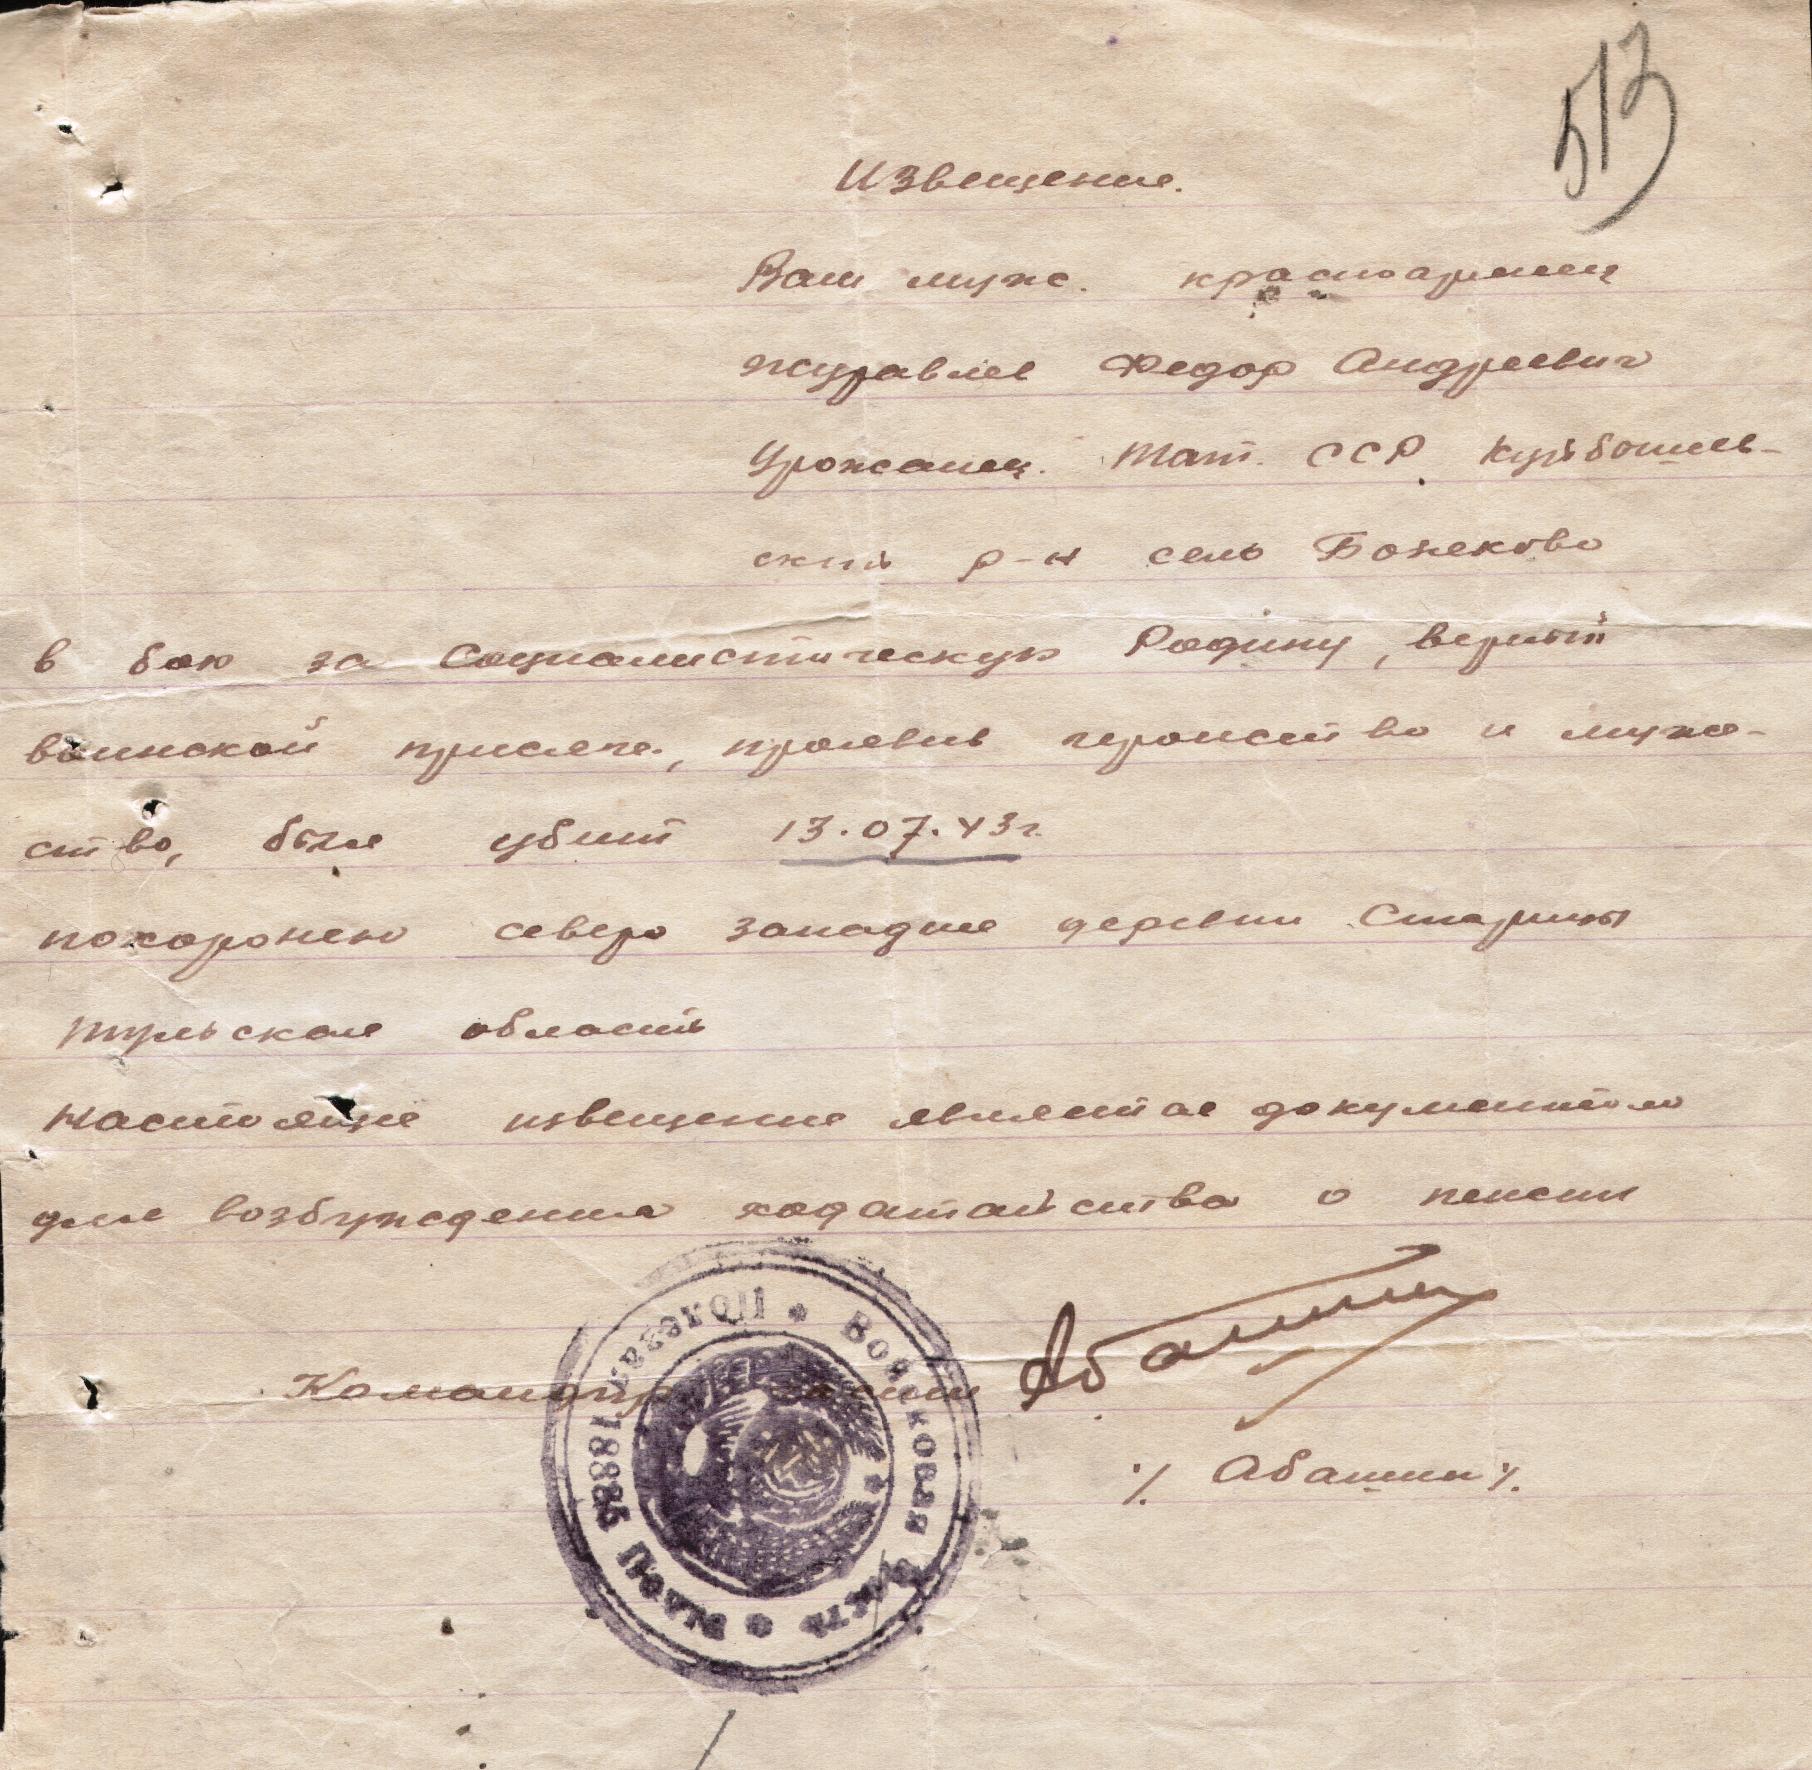 513
Извещение.
Ваш муж. красноармеец
Журавлев Федор Андреевич
Урожанец. Тат. ССР Куйбышев-
ский р-н село Божеково
в бою за Социалистическую Родину, верный
воинской присяге, проявив геройство и муже-
ство, был убит 13.07.43г.
похоронен северо западнее деревни Старицы
Тульская область
Настоящие извещение является документом
для возбуждения ходатайства о пенсии
Командир части
Абашин
·/. Абашин ·/.
Войсковая Часть Полевая Почта 18885